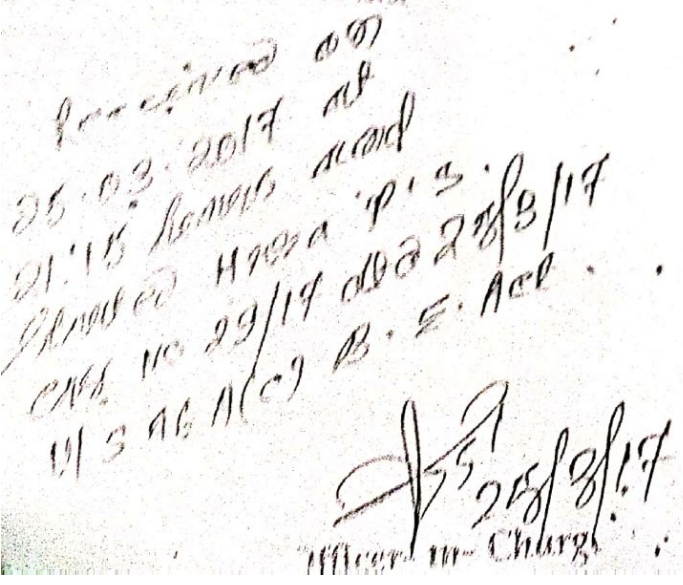 Received on
25.03.2017 at
21:15 hours and
Started Hura P.S.
case no 29/17 dtd 25/3/17
U/S 46 A(c) B.E. Act.
25/3/17
Officer-in-Charge